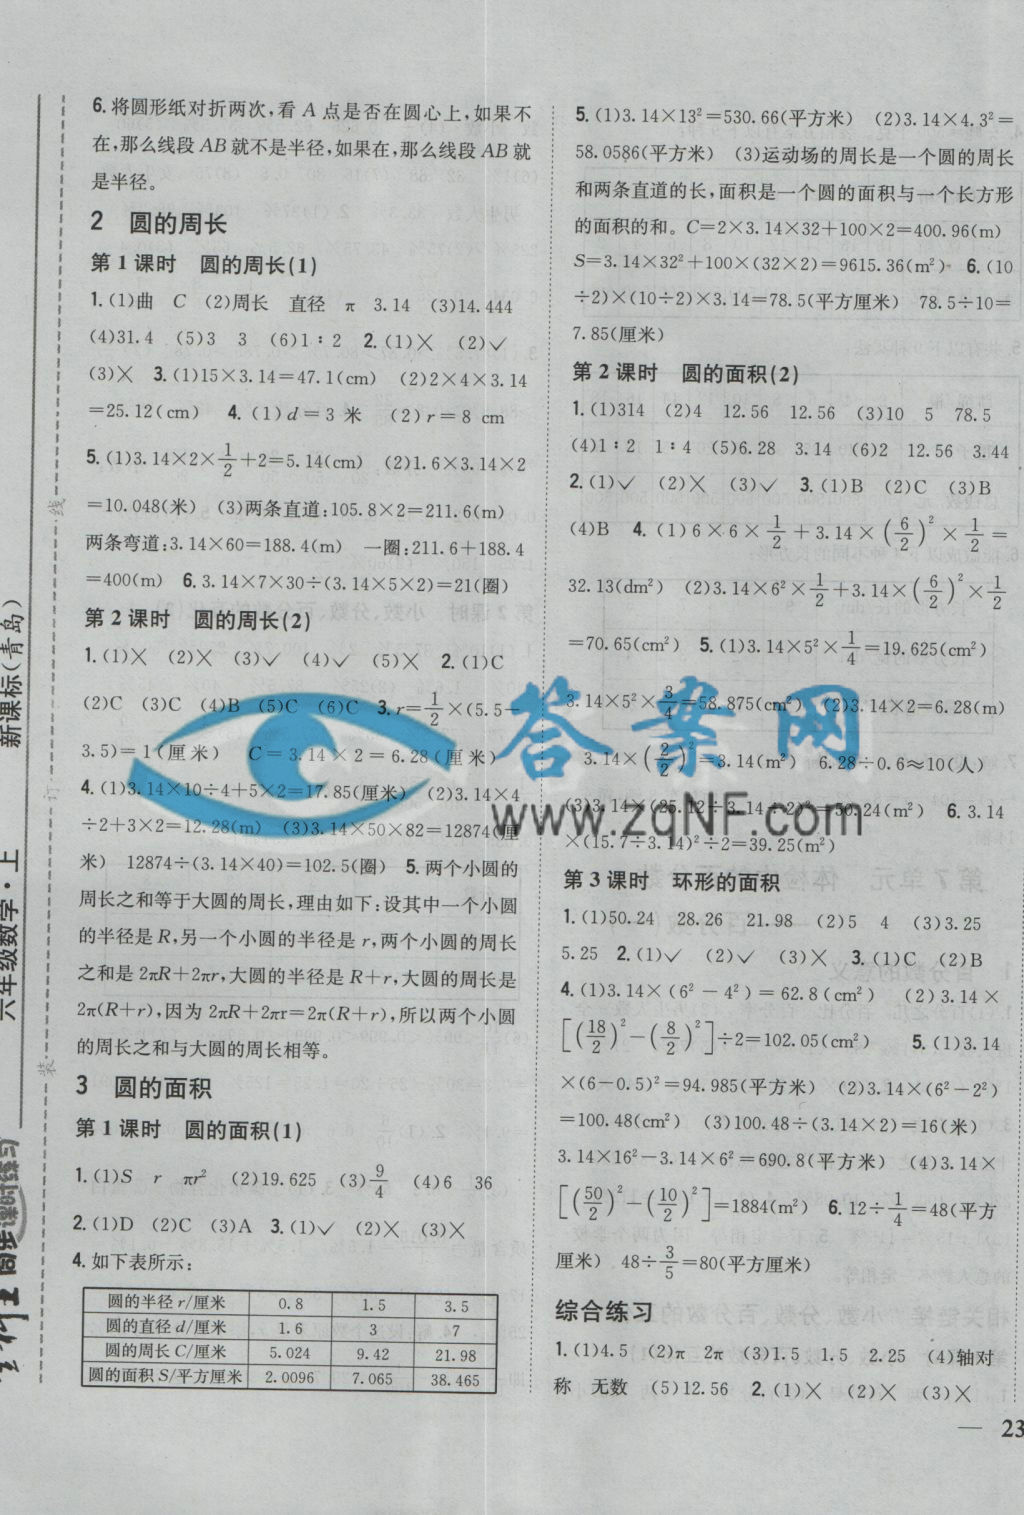 6.将圆形纸对折两次,看A点是否在圆心上,如果不
在,那么线段AB就不是半径,如果在,那么线段AB就
是半径。
2 圆的周长
第1课时 圆的周长(1)
1.(1)曲 C (2)周长 直径 π 3.14 (3)14.444
(4)31.4 (5)3 3 (6)1∶2 2.(1)✕ (2)✓
(3)✕ 3.(1)15×3.14=47.1(cm) (2)2×4×3.14
=25.12(cm) 4.(1)d=3米 (2)r=8 cm
5.(1)3.14×2×1/2+2=5.14(cm) (2)1.6×3.14×2
=10.048(米) (3)两条直道:105.8×2=211.6(m)
两条弯道:3.14×60=188.4(m) 一圈:211.6+188.4
=400(m) 6.3.14×7×30÷(3.14×5×2)=21(圈)
第2课时 圆的周长(2)
1.(1)✕ (2)✕ (3)✓ (4)✓ (5)✕ 2.(1)C
(2)C (3)C (4)B (5)C (6)C 3.r=1/2×(5.5-
3.5)=1(厘米) C=3.14×2=6.28(厘米)
4.(1)3.14×10÷4+5×2=17.85(厘米) (2)3.14×4
÷2+3×2=12.28(m) (3)3.14×50×82=12874(厘
米) 12874÷(3.14×40)=102.5(圈) 5.两个小圆的
周长之和等于大圆的周长,理由如下:设其中一个小圆
的半径是R,另一个小圆的半径是r,两个小圆的周长
之和是2πR+2πr,大圆的半径是R+r,大圆的周长是
2π(R+r),因为2πR+2πr=2π(R+r),所以两个小圆
的周长之和与大圆的周长相等。
3 圆的面积
第1课时 圆的面积(1)
1.(1)S r πr² (2)19.625 (3)9/4 (4)6 36
2.(1)D (2)C (3)A 3.(1)✓ (2)✕ (3)✕
4.如下表所示:
圆的半径r/厘米 0.8 1.5 3.5
圆的直径d/厘米 1.6 3 7
圆的周长C/厘米 5.024 9.42 21.98
圆的面积S/平方厘米 2.0096 7.065 38.465
5.(1)3.14×13²=530.66(平方米) (2)3.14×4.3²=
58.0586(平方米) (3)运动场的周长是一个圆的周长
和两条直道的长,面积是一个圆的面积与一个长方形
的面积的和。C=2×3.14×32+100×2=400.96(m)
S=3.14×32²+100×(32×2)=9615.36(m²) 6.(10
÷2)×(10÷2)×3.14=78.5(平方厘米) 78.5÷10=
7.85(厘米)
第2课时 圆的面积(2)
1.(1)314 (2)4 12.56 12.56 (3)10 5 78.5
(4)1∶2 1∶4 (5)6.28 3.14 (6)2 12.56 3.44
2.(1)✓ (2)✕ (3)✓ 3.(1)B (2)C (3)B
(4)B 4.(1)6×6×1/2+3.14×(6/2)²×1/2=
32.13(dm²) (2)3.14×6²×1/2+3.14×(6/2)²×1/2
=70.65(cm²) 5.(1)3.14×5²×1/4=19.625(cm²)
3.14×5²×3/4=58.875(cm²) (2)3.14×2=6.28(m)
3.14×(2/2)²=3.14(m²) 6.28÷0.6≈10(人)
(3)3.14×(25.12÷3.14÷2)²=50.24(m²) 6.3.14
×(15.7÷3.14)²÷2=39.25(m²)
第3课时 环形的面积
1.(1)50.24 28.26 21.98 (2)5 4 (3)3.25
5.25 2.(1)✓ (2)✓ (3)✕ 3.(1)C (2)B
4.(1)3.14×(6²-4²)=62.8(cm²) (2)3.14×
[(18/2)²-(8/2)²]÷2=102.05(cm²) 5.(1)3.14
×(6-0.5)²=94.985(平方米) (2)3.14×(6²-2²)
=100.48(cm²) (3)100.48÷(3.14×2)=16(米)
3.14×16²-3.14×6²=690.8(平方米) (4)3.14×
[(50/2)²-(10/2)²]=1884(m²) 6.12÷1/4=48(平方
厘米) 48÷3/5=80(平方厘米)
综合练习
1.(1)4.5 (2)π 2π (3)1.5 1.5 2.25 (4)轴对
称 无数 (5)12.56 2.(1)✕ (2)✕ (3)✕
— 23
新课标(青岛)
六年级数学·上
同步课时练习
线
订
装
答案网
www.zqNF.com